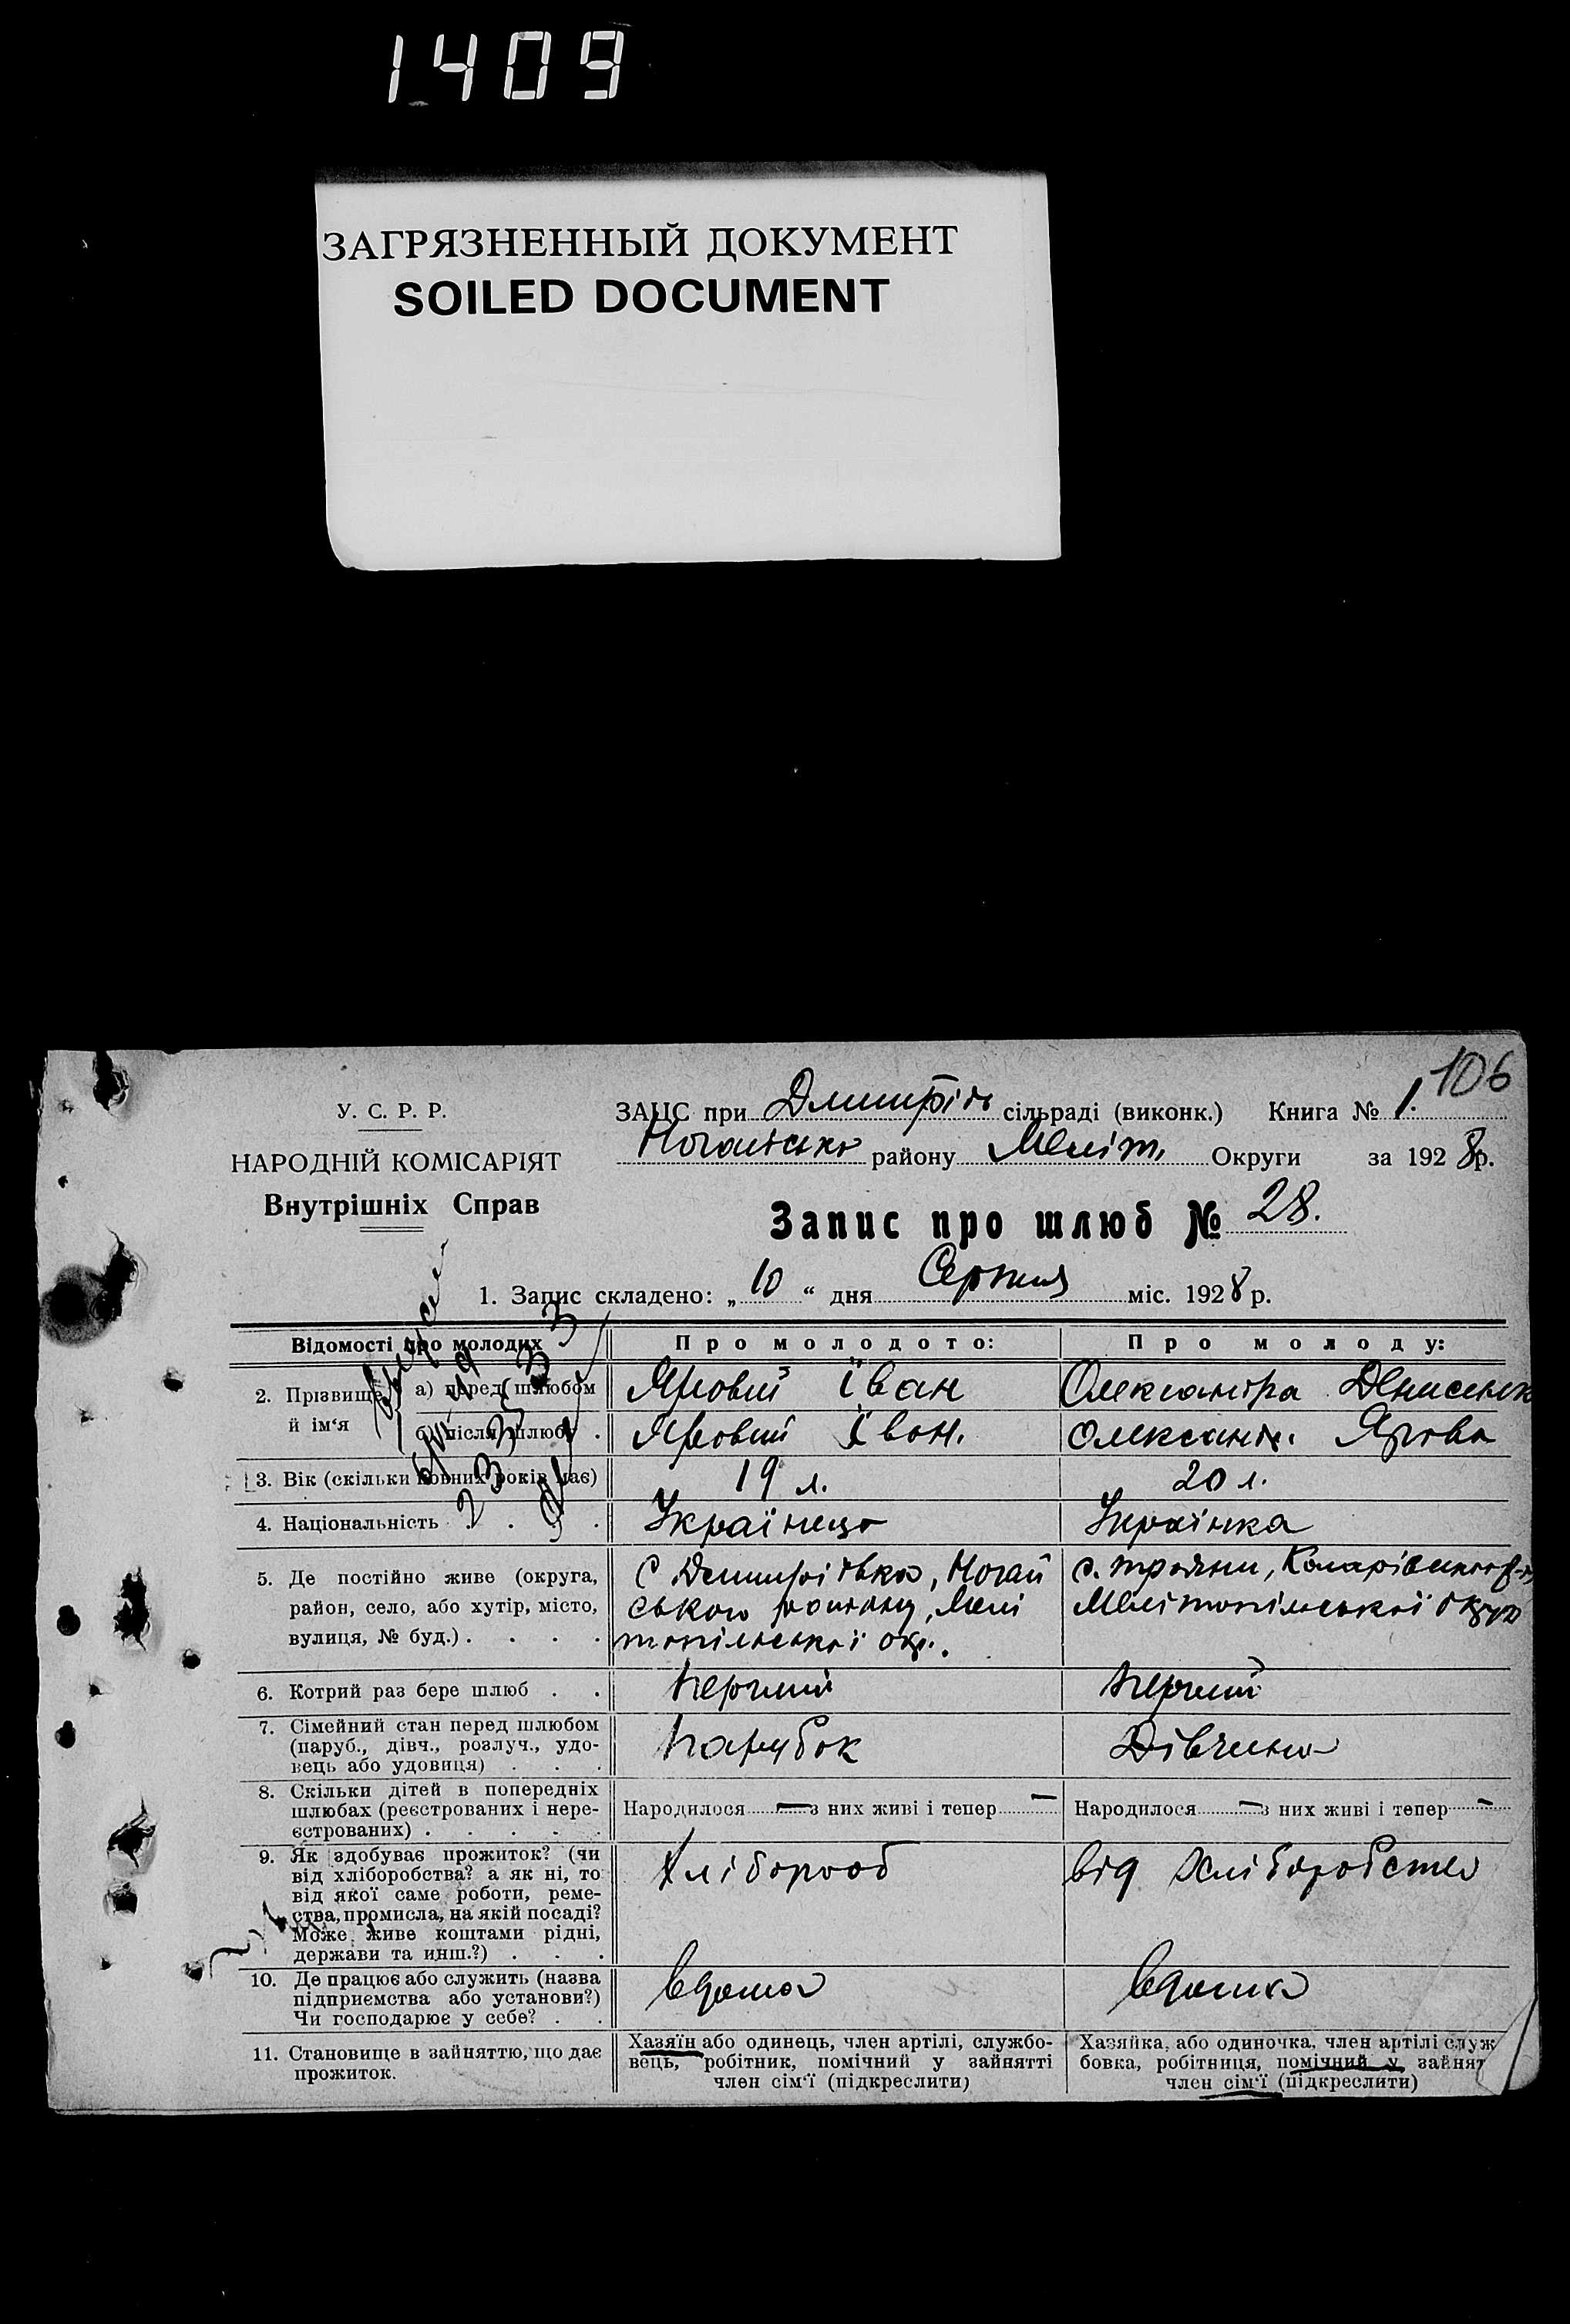 1409
ЗАГРЯЗНЕННЫЙ ДОКУМЕНТ
SOILED DOCUMENT
106
У. С. Р. Р.
ЗАЦС при Дмитрів сільраді (виконк.) Книга № 1.
НАРОДНІЙ КОМІСАРІЯТ
району Меліт. Округи за 1928р.
Внутрішніх Справ
Запис про шлюб № 28.
1. Запис складено: „10“ дня Серпня міс. 1928 р.
Відомості про молодих
Про молодого:
Про молоду:
2. Прізвище й ім‘я
а) перед шлюбом
Яровий Іван
Олександра Денисенк
б) після шлюбу .
Яровий Іван.
Олександ. Ярова
3. Вік (скільки повних років має)
19 л.
20 л.
4. Національність . . . .
Українець
Українка
5. Де постійно живе (округа,
район, село, або хутір, місто,
вулиця, № буд.) . . . .
С Дмитрівка, Ногай
ського району, Мелі
топільської окр..
с. Трояни,
Мелітопільської округ
6. Котрий раз бере шлюб . .
перший
перший
7. Сімейний стан перед шлюбом
(паруб., дівч., розлуч., удо-
вець або удовиця) . . .
парубок
Дівчина
8. Скільки дітей в попередніх
шлюбах (реєстрованих і нере-
єстрованих) . . . . .
Народилося — з них живі і тепер —
Народилося — з них живі і тепер —
9. Як здобуває прожиток? (чи
від хліборобства? а як ні, то
від якої саме роботи, реме-
ства, промисла, на якій посаді?
Може живе коштами рідні,
держави та инш.?) . . .
Хлібороб
від хліборобства
10. Де працює або служить (назва
підприємства або установи?)
Чи господарює у себе? . .
вдома
вдома
11. Становище в зайняттю, що дає
прожиток.
Хазяїн або одинець, член артілі, службо-
вець, робітник, помічний у зайнятті
член сім‘ї (підкреслити)
Хазяйка, або одиночка, член артілі служ
бовка, робітниця, помічний у зайнят
член сім‘ї (підкреслити)